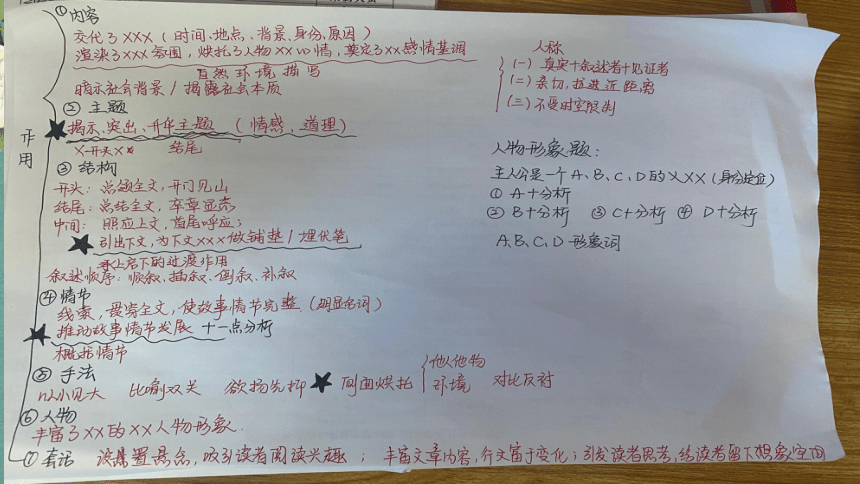 作用
①内容
交代了XXX（时间、地点、背景、身份、原因）
渲染了XXX氛围，烘托了人物XX心情，奠定了XX感情基调
自然环境描写
暗示社会背景/揭露社会本质
② 主题
★揭示、突出、升华主题（情感、道理）
X开头X 结尾
③ 结构
开头：总领全文，开门见山
结尾：总结全文，卒章显志
中间：照应上文，首尾呼应；
★引出下文，为下文XXX做铺垫/埋伏笔
承上启下的过渡作用
叙述顺序：顺叙、插叙、倒叙、补叙
④情节
线索，贯穿全文，使故事情节完整（明显名词）
★推动故事情节发展 十一点分析
概括情节
⑤ 手法
以小见大 比喻双关 欲扬先抑 ★侧面烘托 {他人他物 环境 对比反衬
⑥人物
丰富了XX的XX人物形象.
⑦套话 设置悬念，吸引读者阅读兴趣；丰富文章内容，行文富于变化；引发读者思考，给读者留下想象空间
人称
(一) 真实+叙述者+见证者
(二) 亲切，拉进近距离
(三) 不受时空限制
人物形象题：
主人公是一个A、B、C、D的XXX(身份定位)
① A+分析
② B+分析 ③ C+分析 ④ D+分析
A、B、C、D 形象词